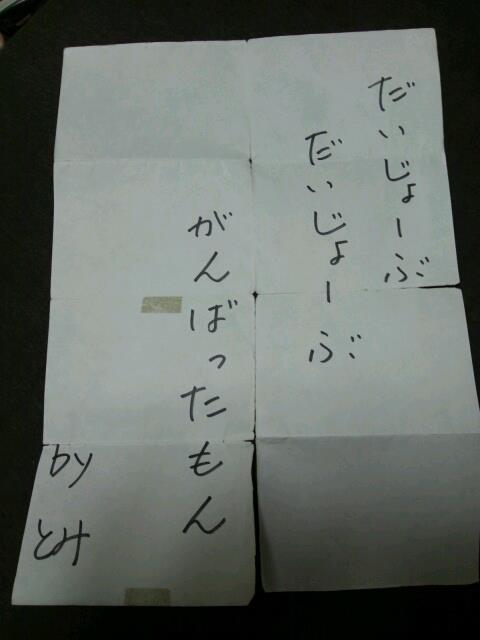 だいじょーぶ
だいじょーぶ
がんばったもん
by
とみ